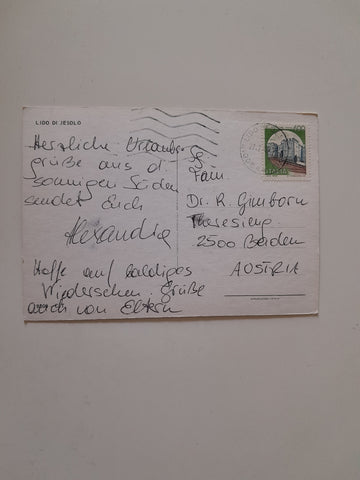 LIDO DI JESOLO
Herzliche Urlaubs-
grüße aus d.
sonnigen Süden
sendet Euch
Alexandra
Hoffe auf baldiges
Wiedersehen. Grüße
auch von Eltern
Fam.
Dr. R. Gimborn
Theresieng.
2500 Baden
AUSTRIA
ITALIA